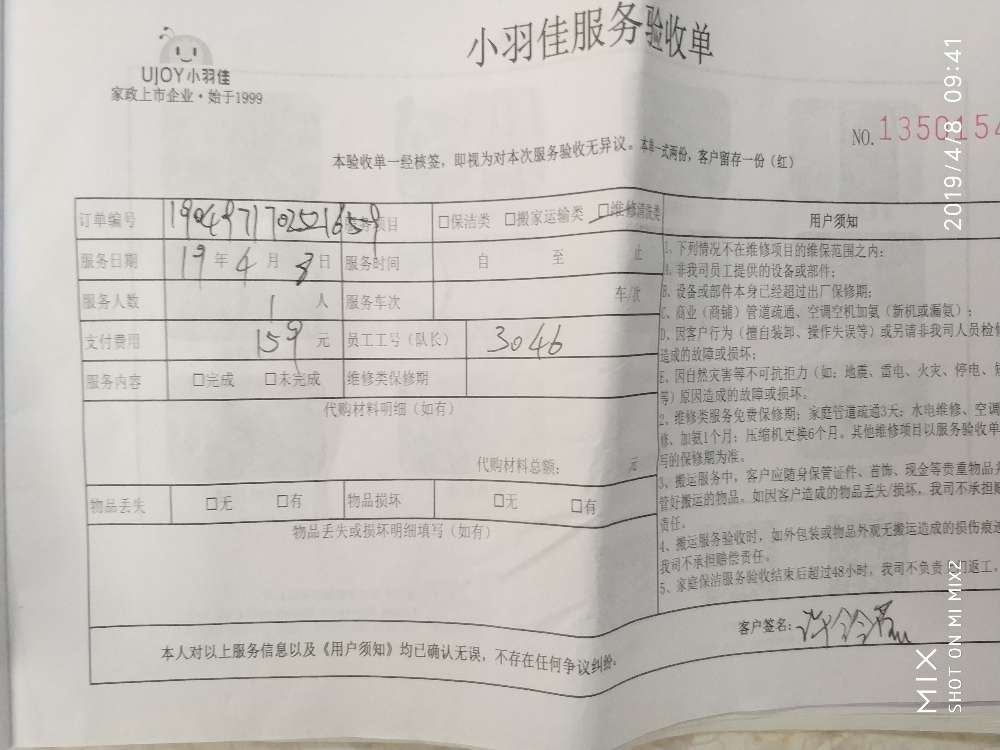 小羽佳服务验收单
UJOY小羽佳
家政上市企业·始于1999
NO.1350154
本验收单一经核签,即视为对本次服务验收无异议。本单一式两份,客户留存一份(红)
订单编号 服务项目 □保洁类 □搬家运输类 □维修清洗类
服务日期 19年4月8日 服务时间 自 至 止
服务人数 1人 服务车次 车/次
支付费用 159元 员工工号(队长) 3046
服务内容 □完成 □未完成 维修类保修期
代购材料明细(如有)
代购材料总额: 元
物品丢失 □无 □有 物品损坏 □无 □有
物品丢失或损坏明细填写(如有)
用户须知
1、下列情况不在维修项目的维保范围之内:
A、非我司员工提供的设备或部件;
B、设备或部件本身已经超过出厂保修期;
C、商业(商铺)管道疏通、空调空机加氨(新机或漏氨);
D、因客户行为(擅自装卸、操作失误等)或另请非我司人员检修
造成的故障或损坏;
E、因自然灾害等不可抗拒力(如:地震、雷电、火灾、停电、短
等)原因造成的故障或损坏。
2、维修类服务免费保修期:家庭管道疏通3天;水电维修、空调
修、加氨1个月;压缩机更换6个月。其他维修项目以服务验收单
写的保修期为准。
3、搬运服务中,客户应随身保管证件、首饰、现金等贵重物品并
管好搬运的物品。如因客户造成的物品丢失/损坏,我司不承担赔
责任。
4、搬运服务验收时,如外包装或物品外观无搬运造成的损伤痕迹
我司不承担赔偿责任。
5、家庭保洁服务验收结束后超过48小时,我司不负责 返工。
本人对以上服务信息以及《用户须知》均已确认无误,不存在任何争议纠纷。
客户签名:
2019/4/8 09:41
MIX
SHOT ON MI MIX2